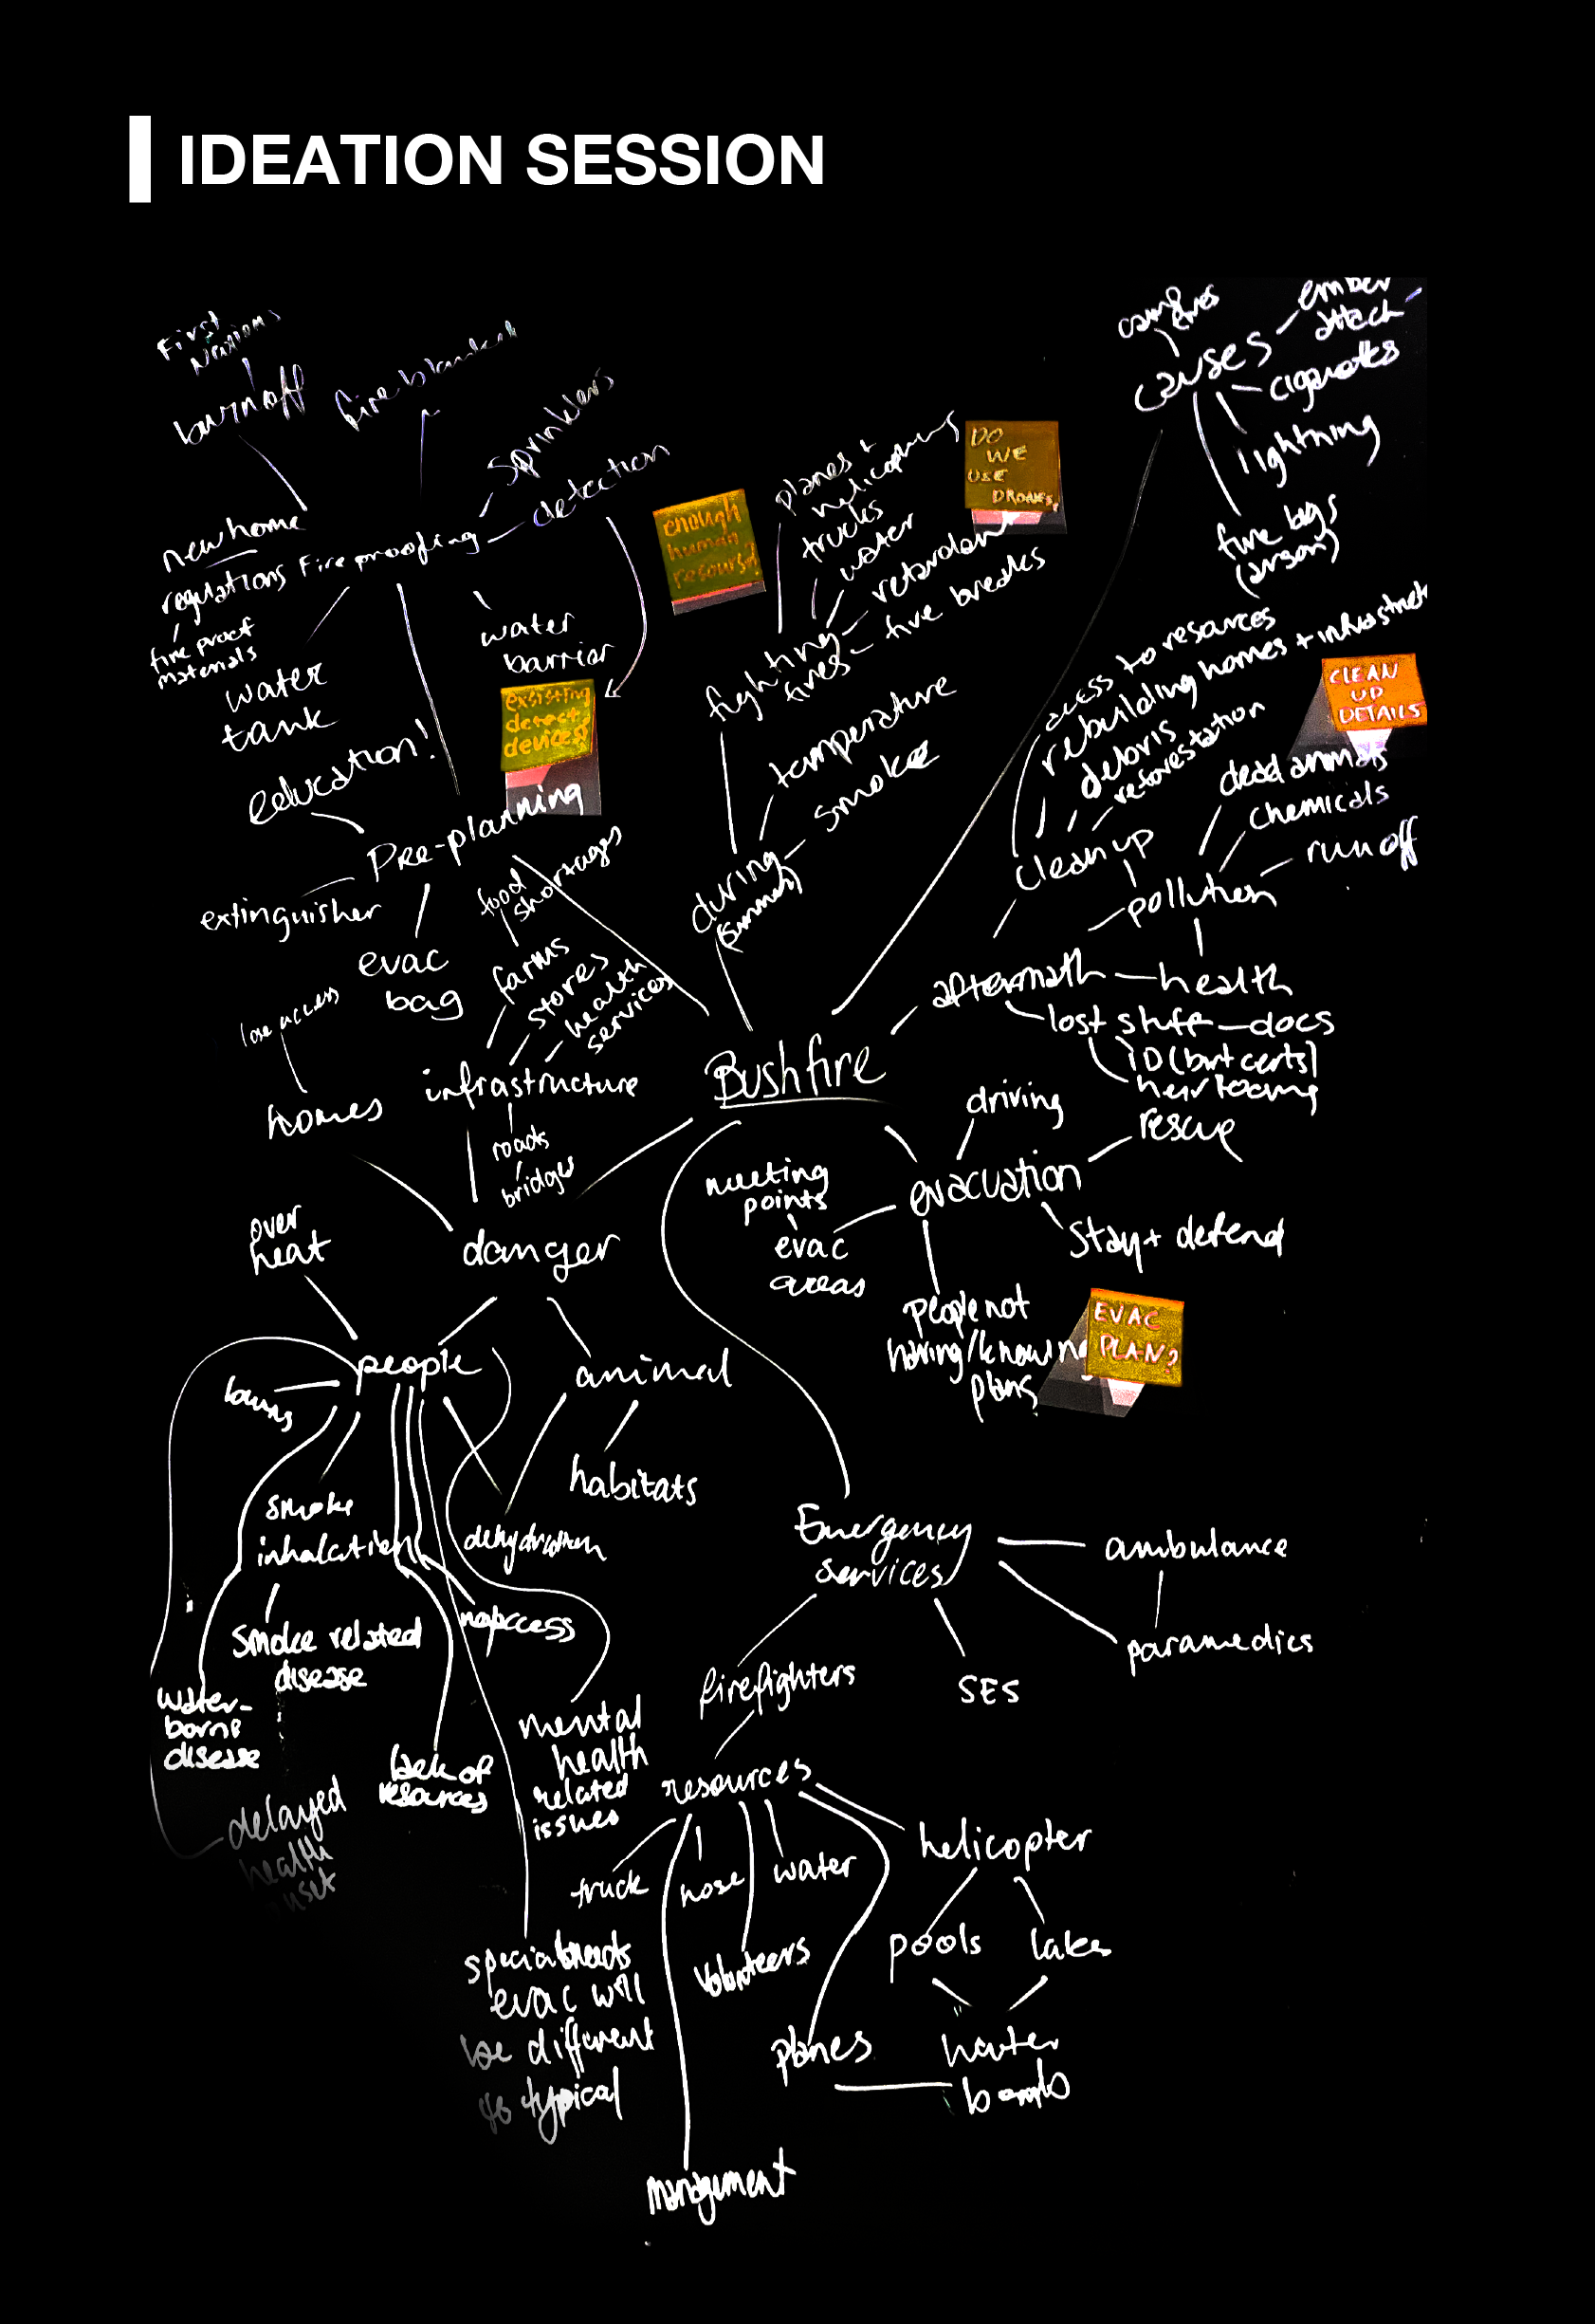 IDEATION SESSION
First
Nations
burn off
fire blanket
Sprinklers
detection
new home
regulations
Fire proofing
fire proof
materials
water
tank
water
barrier
exsisting
detect.
devices?
education!
Pre-planning
extinguisher
evac
bag
enough
human
resourse?
planes +
helicopters
trucks
water
retardant
fire breaks
fighting
fires
DO
WE
USE
DRONES?
temperature
smoke
during
(summer)
camp
fires
causes
ember
attack
cigarettes
lightning
fire bugs
(arson)
access to resources
rebuilding homes + infrastruct
debris
reforestation
clean up
CLEAN
UP
DETAILS
dead animals
chemicals
run off
pollution
aftermath
health
lost stuff - docs
ID (birt certs)
heirlooms
food
shortages
farms
stores
health
services
infrastructure
roads
bridges
lose access
homes
Bushfire
driving
rescue
evacuation
meeting
points
evac
areas
Stay + defend
people not
having/knowing
plans
EVAC
PLAN?
danger
over
heat
people
burns
animal
habitats
dehydration
smoke
inhalation
smoke related
disease
water-
borne
disease
no access
lack of
resources
mental
health
related
issues
delayed
health
special needs
evac will
be different
to typical
Emergency
services
ambulance
paramedics
SES
firefighters
resources
truck
hose
water
volunteers
helicopter
pools
lakes
planes
water
bomb
management